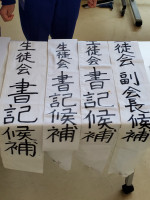 徒会 副会長候補
生徒会 書記候補
生徒会 書記候補
生徒会 書記候補